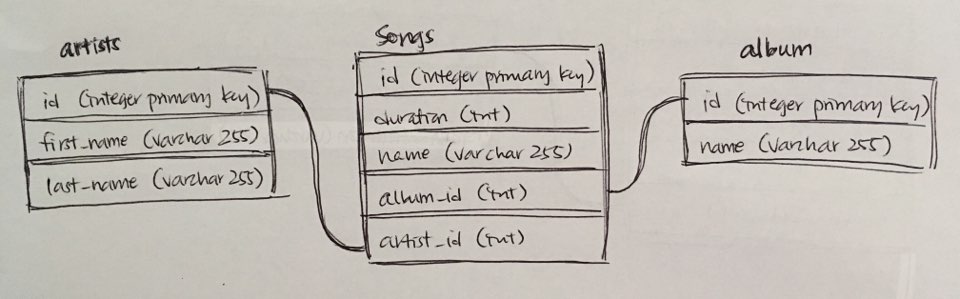 artists
id (integer primary key)
first_name (varchar 255)
last_name (varchar 255)
Songs
id (integer primary key)
duration (int)
name (varchar 255)
album_id (int)
artist_id (int)
album
id (integer primary key)
name (varchar 255)